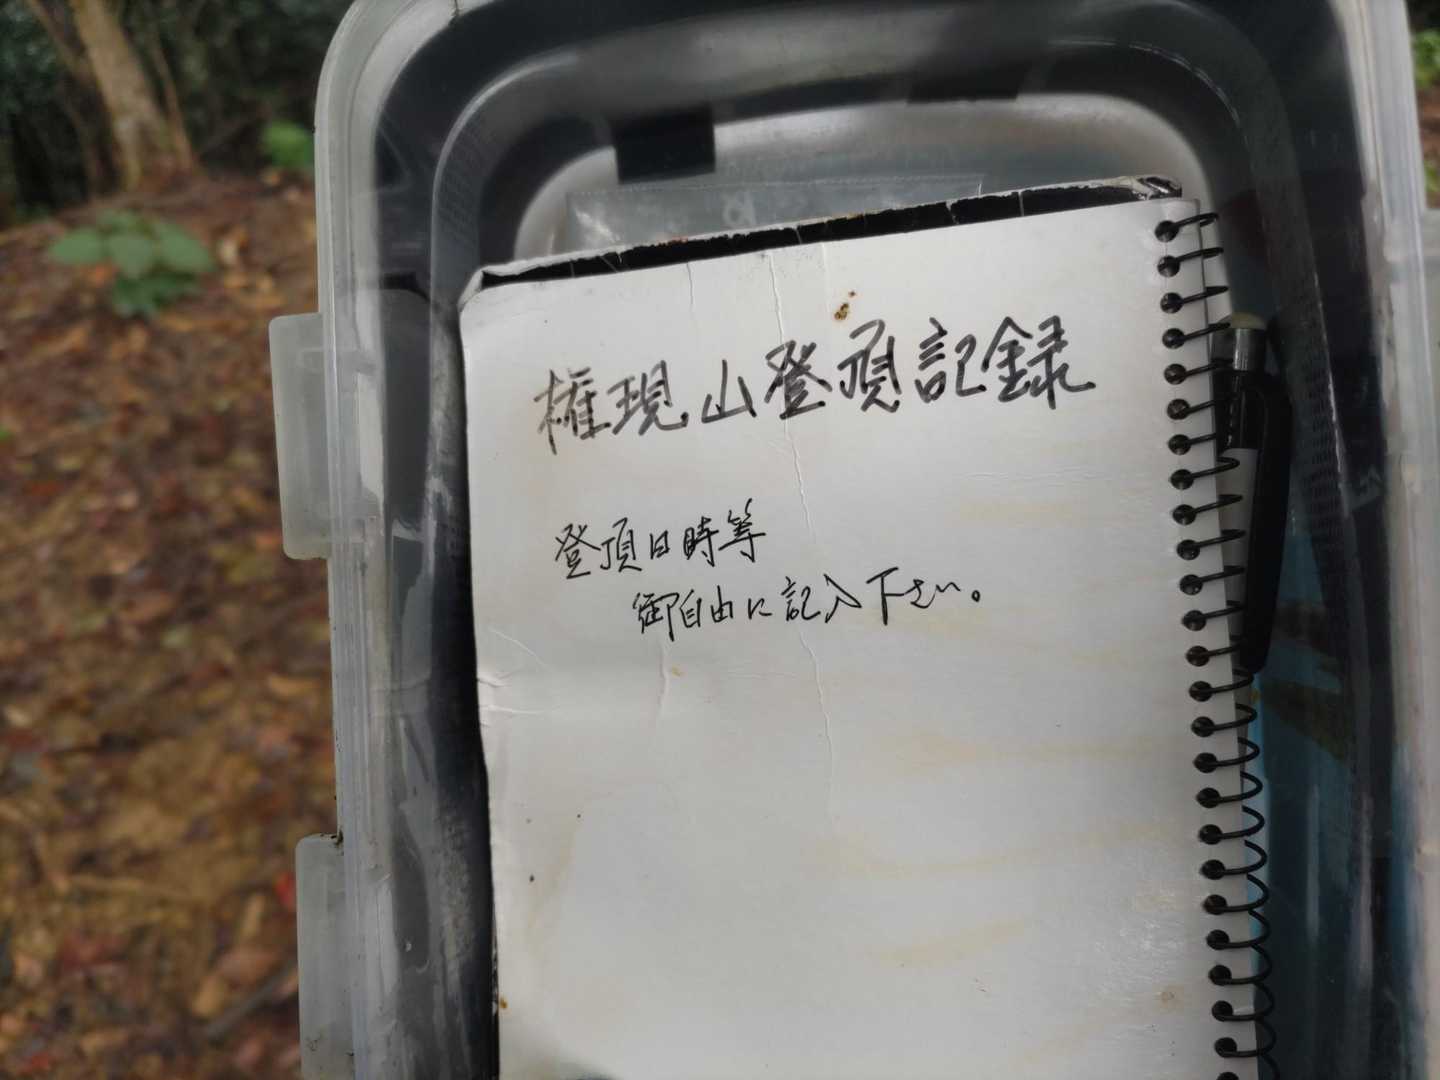 権現山登頂記録
登頂日時等
御自由に記入下さい。